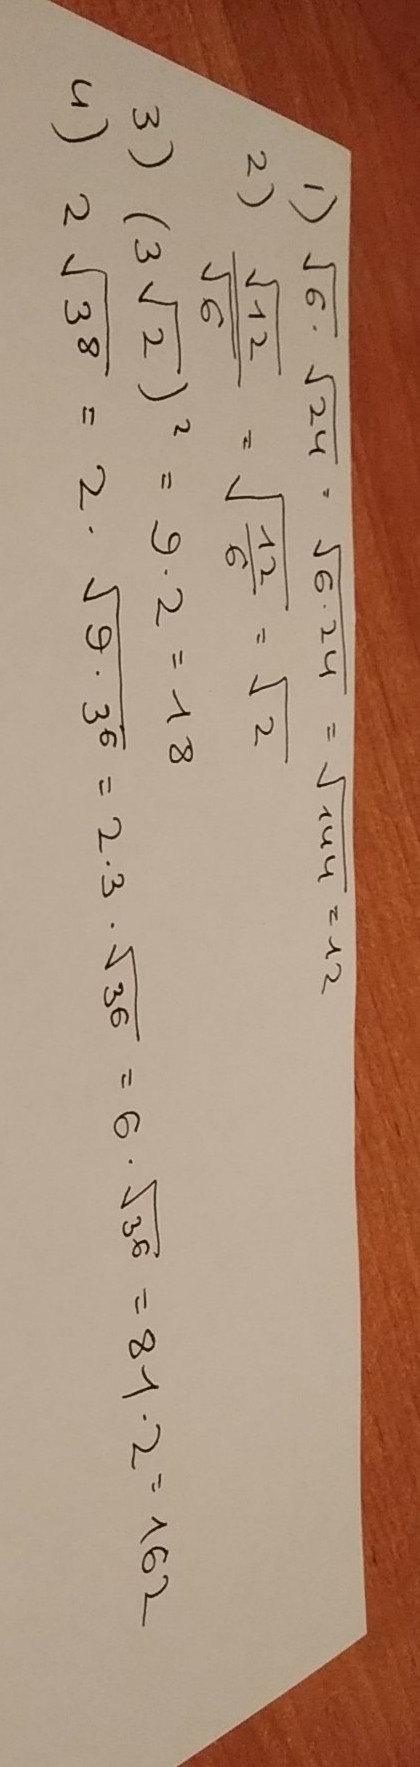 1) √6 · √24 = √6·24 = √144 = 12
2) √12/√6 = √12/6 = √2
3) (3√2)² = 9·2 = 18
4) 2√3⁸ = 2·√9·3⁶ = 2·3·√3⁶ = 6·√3⁶ = 81·2 = 162